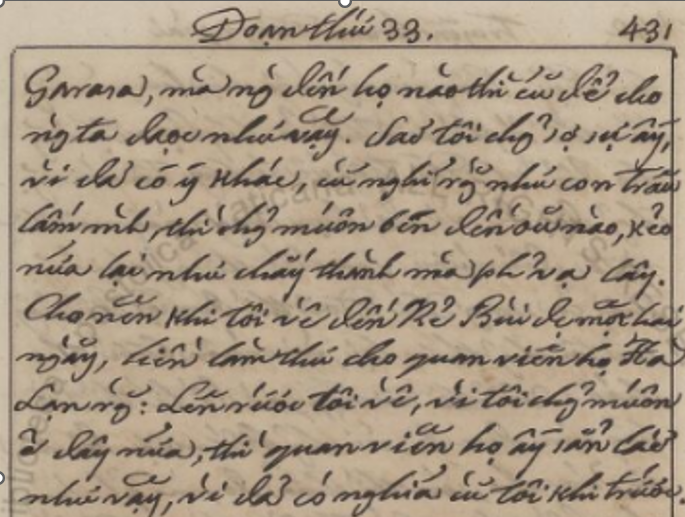 Đoạn thứ 33. 431
Garasa, mà ng̀ đến họ nào thì cũ để cho
ng̀ ta đạoc như vậy. Saơ tôi chg̉ sợ sự ấy,
vì đã có ý khác, cũ nghĩ rg̀ như con trâu
lấm mh̀, thì chg̉ muốn bén đến âu nào, kẻo
nữa lại như cháy thành mà ph̉ vạ lây.
Cho nên khi tôi về đến Kẻ Bùi đc một hai
ngày, liền làm thư cho quan viên họ Hà
Lạn rg̀: Lên rước tôi về, vì tôi chg̉ muốn
ở đây nữa, thì quan viên họ ấy sẵn
như vậy, vì đã có nghĩa cũ tôi khi trước.